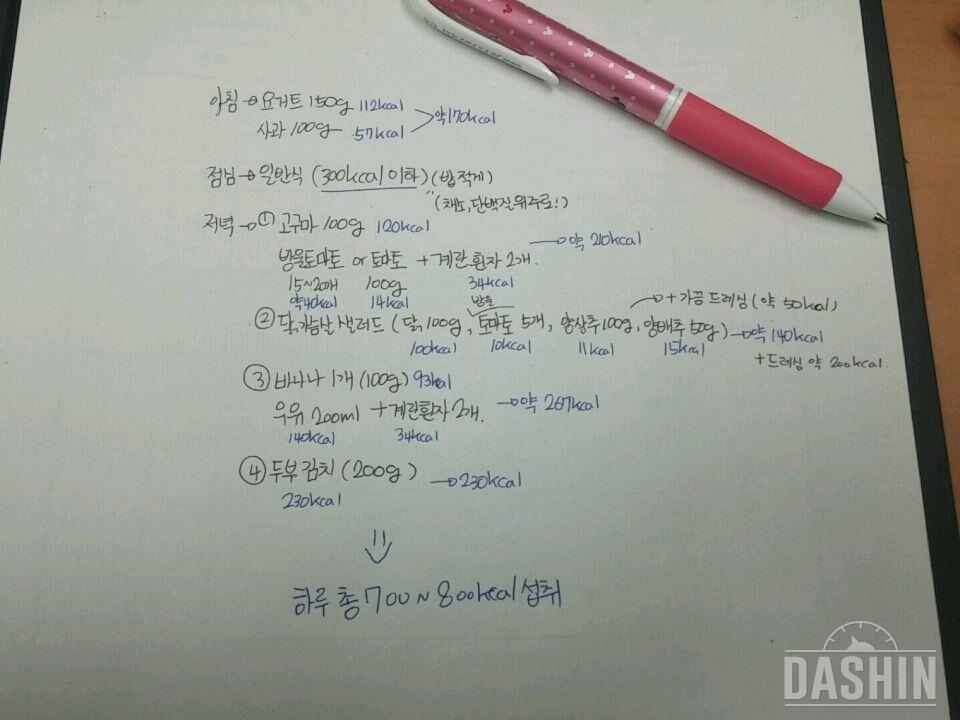 아침 → 요거트 150g 112kcal
사과 100g 57kcal > 약170kcal
점심 → 일반식 (300kcal 이하) (밥 적게)
(채소, 단백질 위주로!)
저녁 → ① 고구마 100g 120kcal
방울토마토 or 토마토 + 계란 흰자 2개. → 약 210kcal
15~20개 100g 34kcal
약40kcal 14kcal
방울 → + 가끔 드레싱 (약 50kcal)
② 닭가슴살 샐러드 (닭 100g, 토마토 5개, 양상추 100g, 양배추 50g) → 약 140kcal
100kcal 10kcal 11kcal 15kcal + 드레싱 약 200kcal.
③ 바나나 1개 (100g) 93kcal
우유 200ml + 계란흰자 2개. → 약 267kcal
140kcal 34kcal
④ 두부김치 (200g) → 230kcal
230kcal
하루 총 700~800kcal 섭취
DASHIN